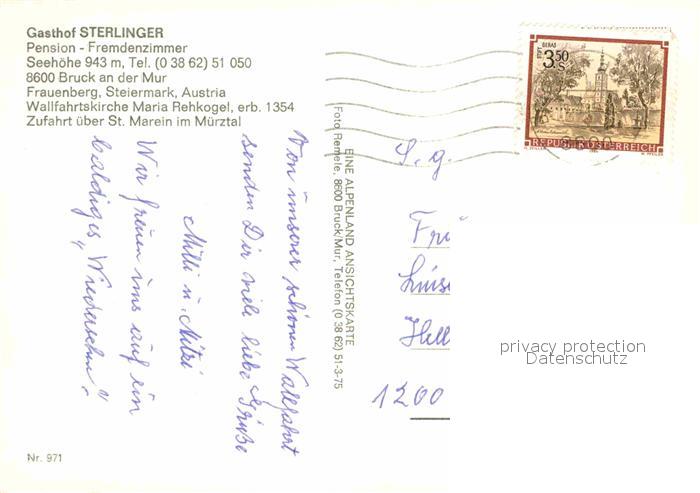 Gasthof STERLINGER
Pension - Fremdenzimmer
Seehöhe 943 m, Tel. (0 38 62) 51 050
8600 Bruck an der Mur
Frauenberg, Steiermark, Austria
Wallfahrtskirche Maria Rehkogel, erb. 1354
Zufahrt über St. Marein im Mürztal
Von unserer schönen Wallfahrt
senden Dir viele liebe Grüße
Milli u. Mitzi
Wir freuen uns auf ein
baldiges „Wiedersehn"
Nr. 971
EINE ALPENLAND ANSICHTSKARTE
Foto Remele, 8600 Bruck/Mur, Telefon (0 38 62) 51-3-75
STIFT GERAS
3.50
S
REPUBLIK ÖSTERREICH
S. g.
Fr
Luis
Hell
1200
privacy protection
Datenschutz